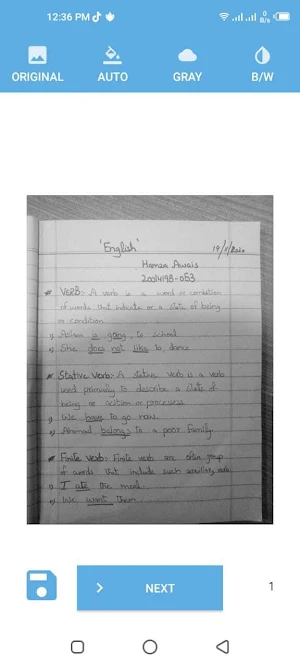 12:36 PM
0 B/s
ORIGINAL AUTO GRAY B/W
'English'
Hamna Awais
20014198-053
* VERB:- A verb is a word or combination
of words that indicate or a state of being
or condition
is going to school
She does not like to dance
* Stative verb:- A stative verb is a verb
used primarily to describe a state of
being or action or processes
We have to go now.
Ahmad belongs to a poor family.
* Finite verb: Finite verb are often group
of words that include such auxiliary verb
I ate the meal.
We want them
NEXT
1